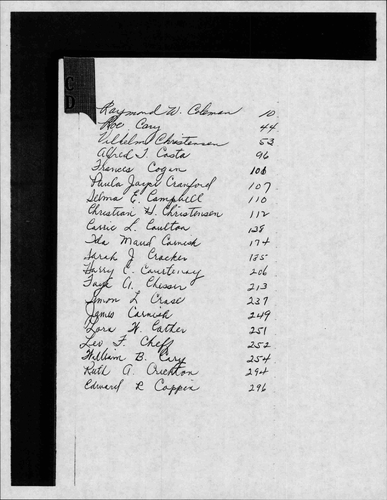 C
D
Raymond W. Coleman 10
Roe Cary 44
Vilhelm Christensen 53
Alfred J. Costa 96
Francis Cogan 101
Paula Jayne Cranford 107
Selma E. Campbell 110
Christian H. Christensen 112
Carrie L. Coulton 128
Ida Maud Cornish 174
Sarah J. Crocker 185
Harry C. Courtenay 206
Faye A. Chesser 213
Simon L. Crase 237
James Cornish 249
Lora W. Cather 251
Leo F. Cheff 252
William B. Cary 254
Ruth A. Crichton 294
Edward R. Coppin 296